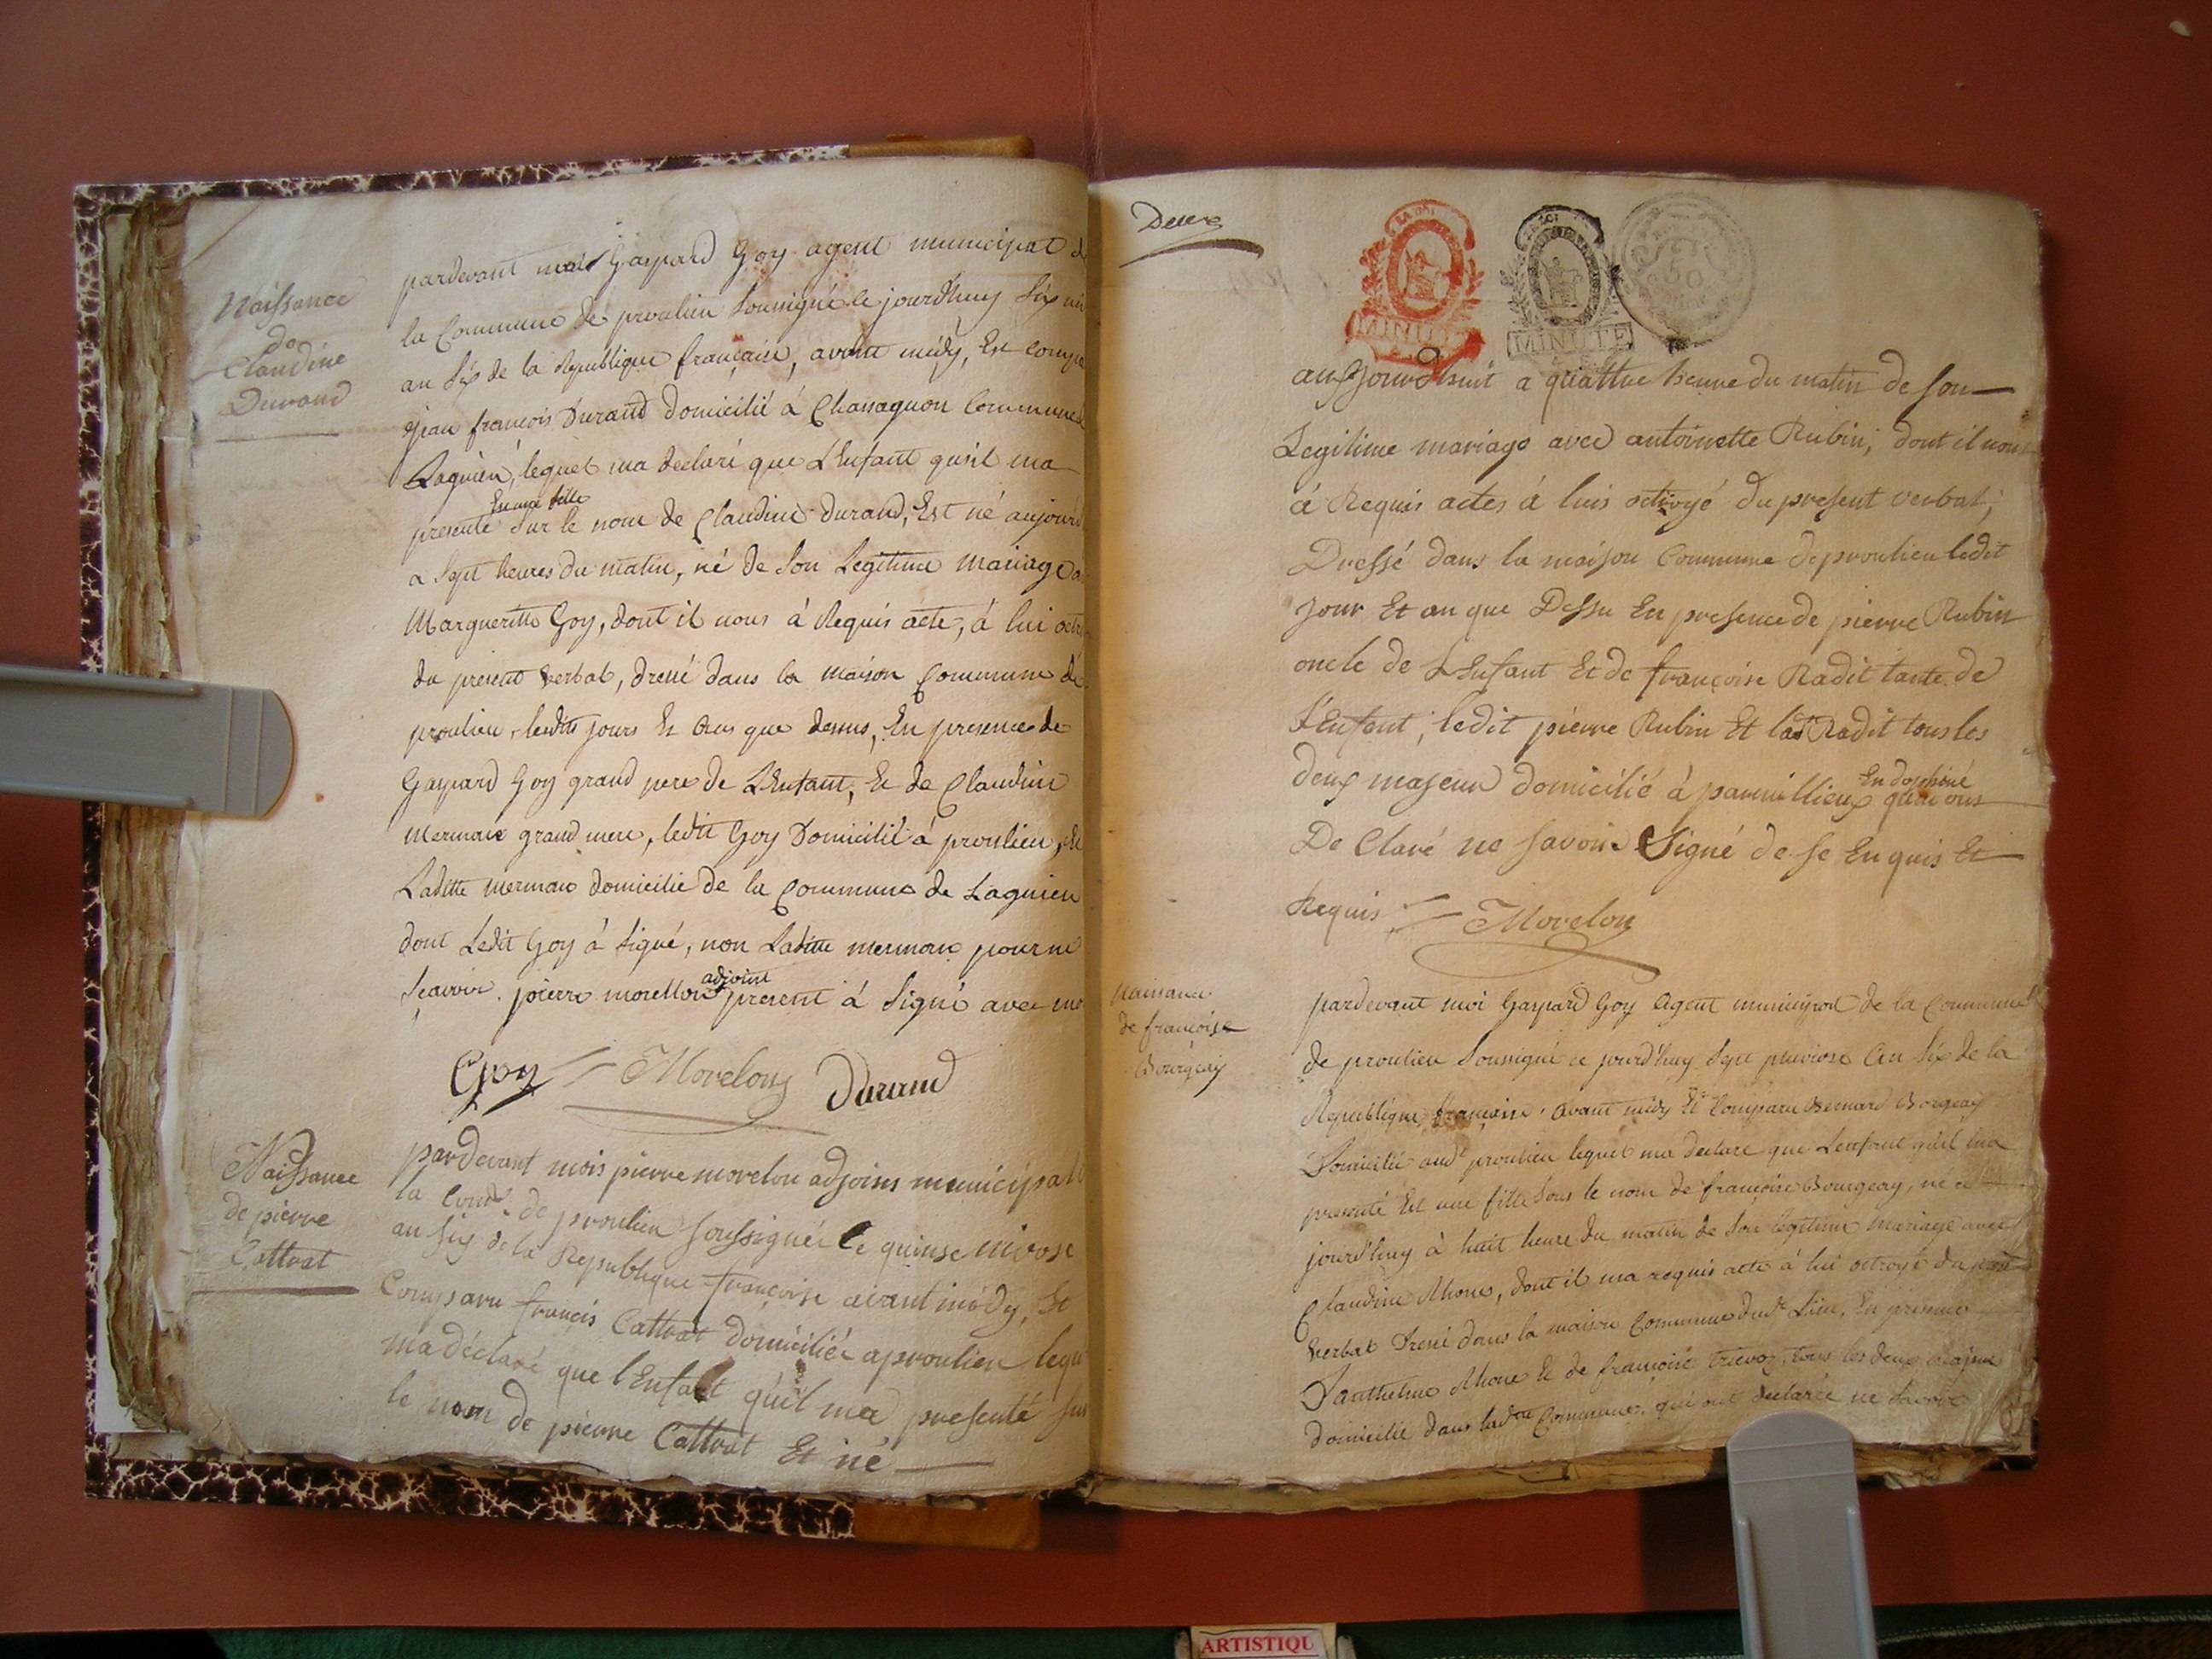 Naissance
de
Claudine
Durand
pardevant moi Gaspard Goy agent municipal
la Commune de proulieu soussigné le jourdhuy Six
an Six de la Republique française, avant midy, Est
jean francois Durand domicilié á Chassagnon Commune
Lagnieu, lequel ma declaré que L'Enfant qu'il ma
Est une fille
presenté Sur le nom de Claudine durand, Est né
a Sept heures du matin, né de Son Legitime Mariage
Margueritte Goy, dont il nous à Requis acte, á lui
du present verbal, dressé dans la maison Commune de
proulieu, lesdits jours Et an que dessus, En presence de
Gaspard Goy grand pere de L'Enfant, Et de Claudine
mermoux grand mere, ledit Goy Domicilié á proulieu,
Laditte mermoux domicilie de la Commune de Lagnieu
dont Ledit Goy á Signé, non Laditte mermoux pour ne
Sçavoir. pierre morellon adjoint present á Signé avec
Goy Morelon Durand
Naissance
de pierre
Cattrat
pardevant mois pierre morelon adjoins
la Comme de proulieu soussignéz Ce quinse nivose
an six de la Republique françoise avant midy, Et
Comparu françis Cattrat domiciliéz a proulieu
ma déclaré que l'Enfant qu'il ma presenté
le nom de pierre Cattrat Et né
Deux
LA LOI
MINUTE
MINUTE
50
aux jourdhuit a quattre heure du matin de son
Legitime mariage avec antoinette Rubin, dont il nous
á Requis actes á luis octroyé du present verbal,
Dressé dans la maison Commune de proulieu ledit
jour Et an que Dessu En presence de pierre Rubin
oncle de L'Enfant Et de françoise Radit tante de
L'Enfant, ledit pierre Rubin Et lad Radit tous les
En dophiné
deux majeur domicilié à parmillieux qui ons
De Claré ne savoir Signé de se Enquis Et
Requis Morelon
Naissance
de françoise
Bourgeay
pardevant moi Gaspard Goy agent municipal de la Commune
de proulieu soussigné ce jourd'huy Sept pluviose an Six de la
Republique française, avant midy Est Comparu Bernard Borgeay
Domicilié audt proulieu lequel ma declare que L'enfant qu'il ma
presenté Est une fille Sous le nom de françoise Bourgeay, né ce
jourd'huy à huit heure du matin de Son legitime mariage avec
Claudine Rhone, dont il ma requis acte à lui octroyé du
verbal Dressé dans la maison Commune dudt Lieu, En presence
D'anthelme Rhone Et de françoise tous les deux majeur
domicilie dans ladtte Commune, qui ont declarée ne Savoir
ARTISTIQU